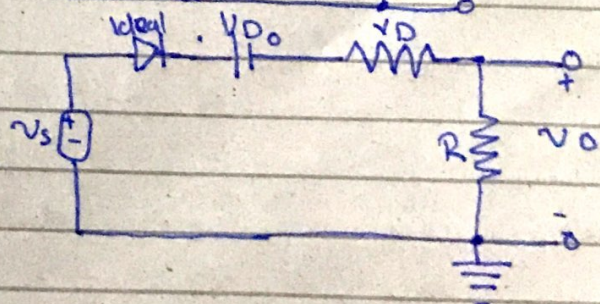 ideal VDo rD
+
vs + - R vo
-